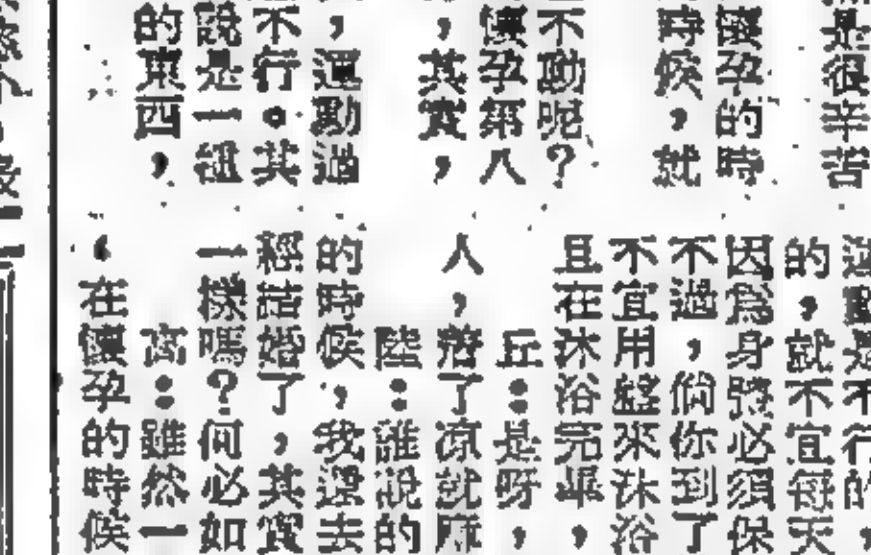 是很辛苦
懷孕的時
時候，就
不動呢？
懷孕第八
，其實，
，運動過
不行。其
說是一種
的東西，
運動是不行的，
的，就不宜每天
因為身體必須保
不過，倘你到了
不宜用盤來沐浴
且在沐浴完畢，
丘：是呀，
人，着了凉就麻
陸：誰說的
的時候，我還去
經結婚了，其實
一樣嗎？何必如
高：雖然一
，在懷孕的時候